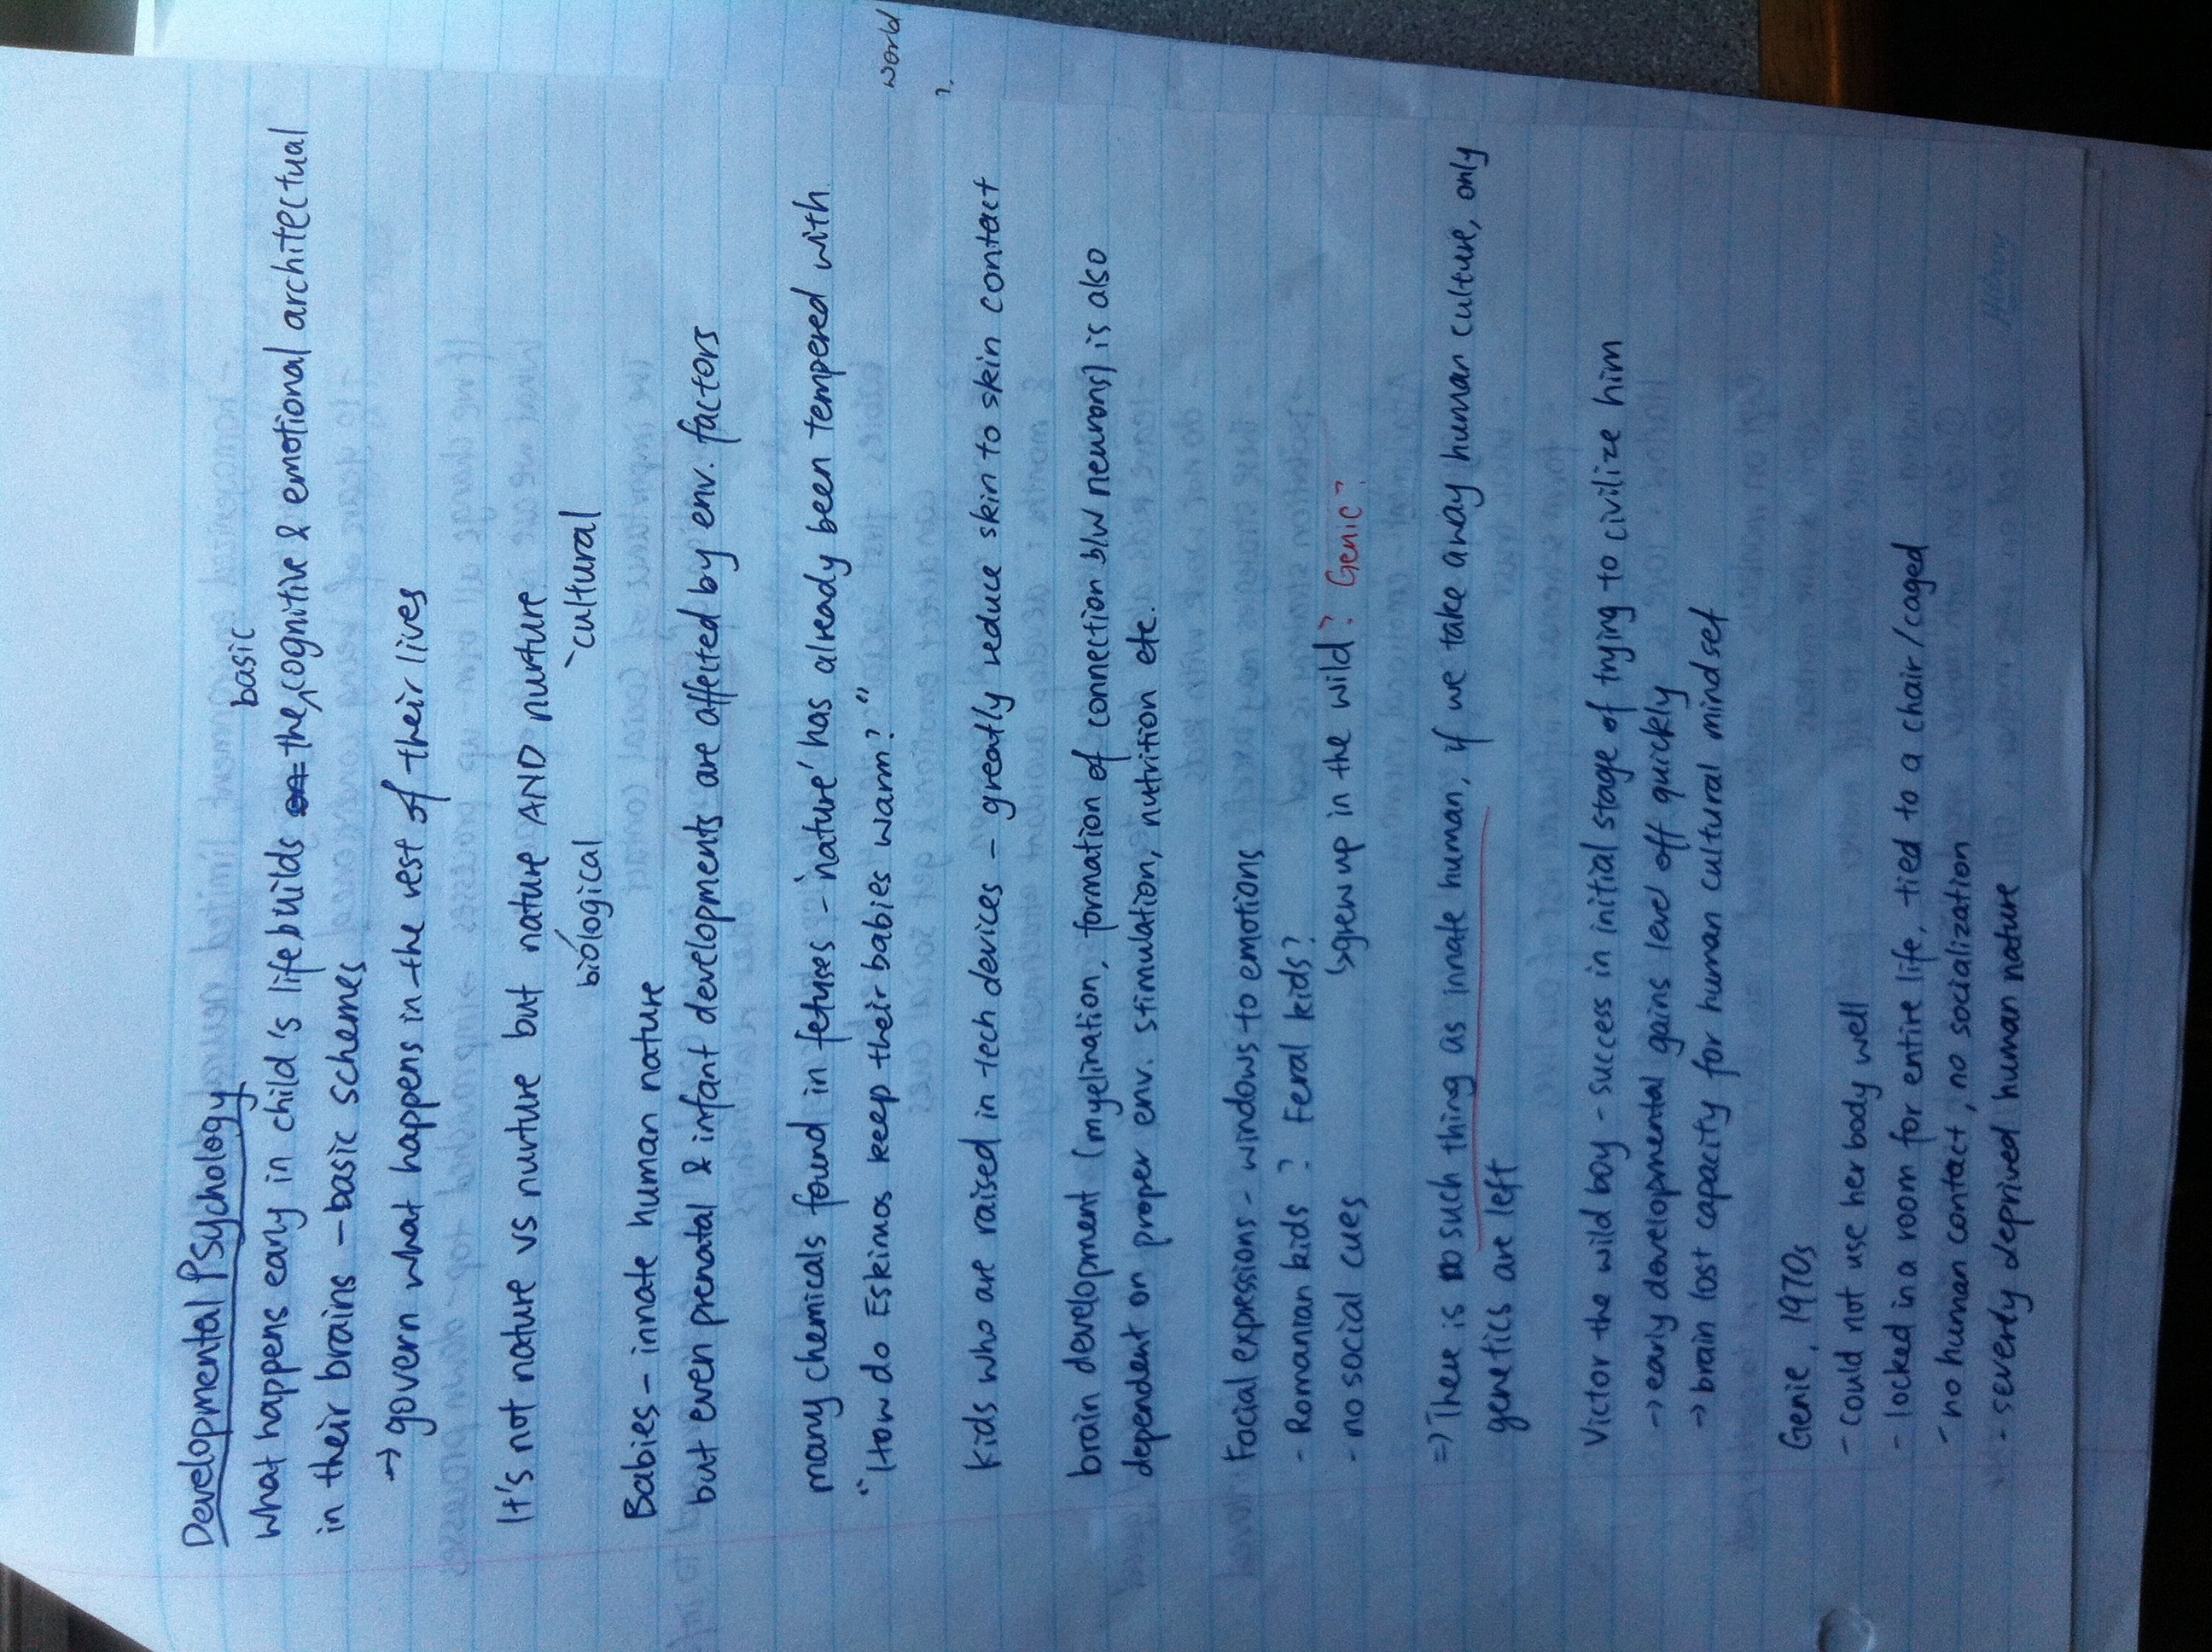 Developmental Psychology
basic
What happens early in child's life builds the cognitive & emotional architectual
in their brains - basic schemes
→ govern what happens in the rest of their lives
It's not nature vs nurture but nature AND nurture
biological cultural
Babies - innate human nature
but even prenatal & infant developments are affected by env. factors
many chemicals found in fetuses - 'nature' has already been tempered with
"How do Eskimos keep their babies warm?"
kids who are raised in tech devices - greatly reduce skin to skin contact
brain development (myelination, formation of connection b/w neurons) is also
dependent on proper env. stimulation, nutrition etc.
Facial expressions - windows to emotions
- Romanian kids ? Feral kids?
↳ grew up in the wild? Genie?
- no social cues
⇒ There is no such thing as innate human, if we take away human culture, only
genetics are left
Victor the wild boy - success in initial stage of trying to civilize him
→ early developmental gains level off quickly
→ brain lost capacity for human cultural mindset
Genie, 1970s
- could not use her body well
- locked in a room for entire life, tied to a chair/caged
- no human contact, no socialization
- severly deprived human nature
world
?